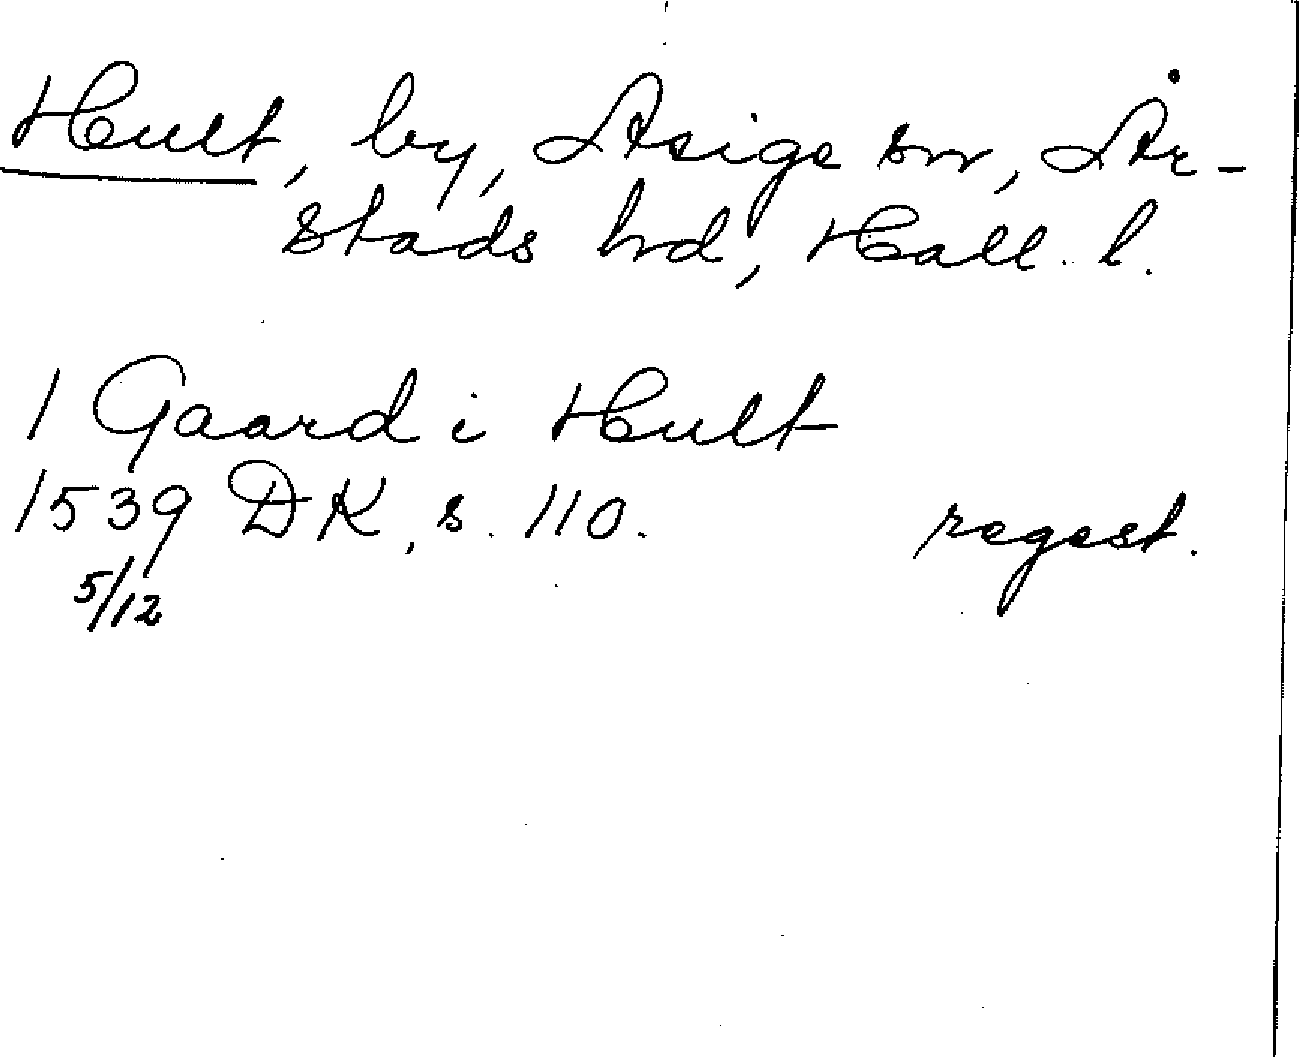 Hult, by, Asige sn, År-
stads hd, Hall. l.
1 Gaard i Hult
1539 DK, s. 110. regest.
5/12